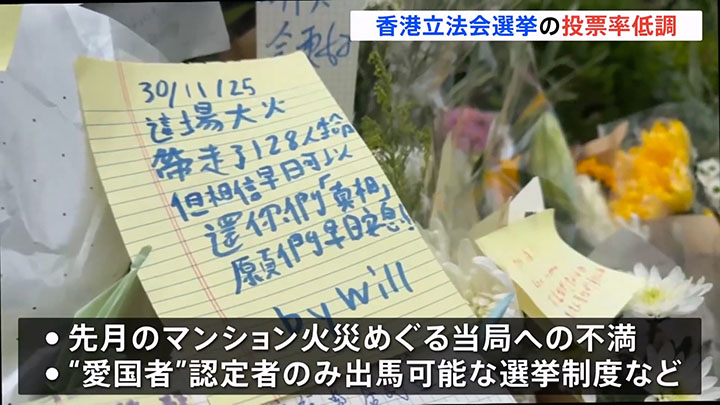 香港立法会選挙の投票率低調
30/11/25
這場大火
帶走了128人生命
但相信早日可以
還你們「真相」
願們早日安息!!
by will
● 先月のマンション火災めぐる当局への不満
● “愛国者”認定者のみ出馬可能な選挙制度など